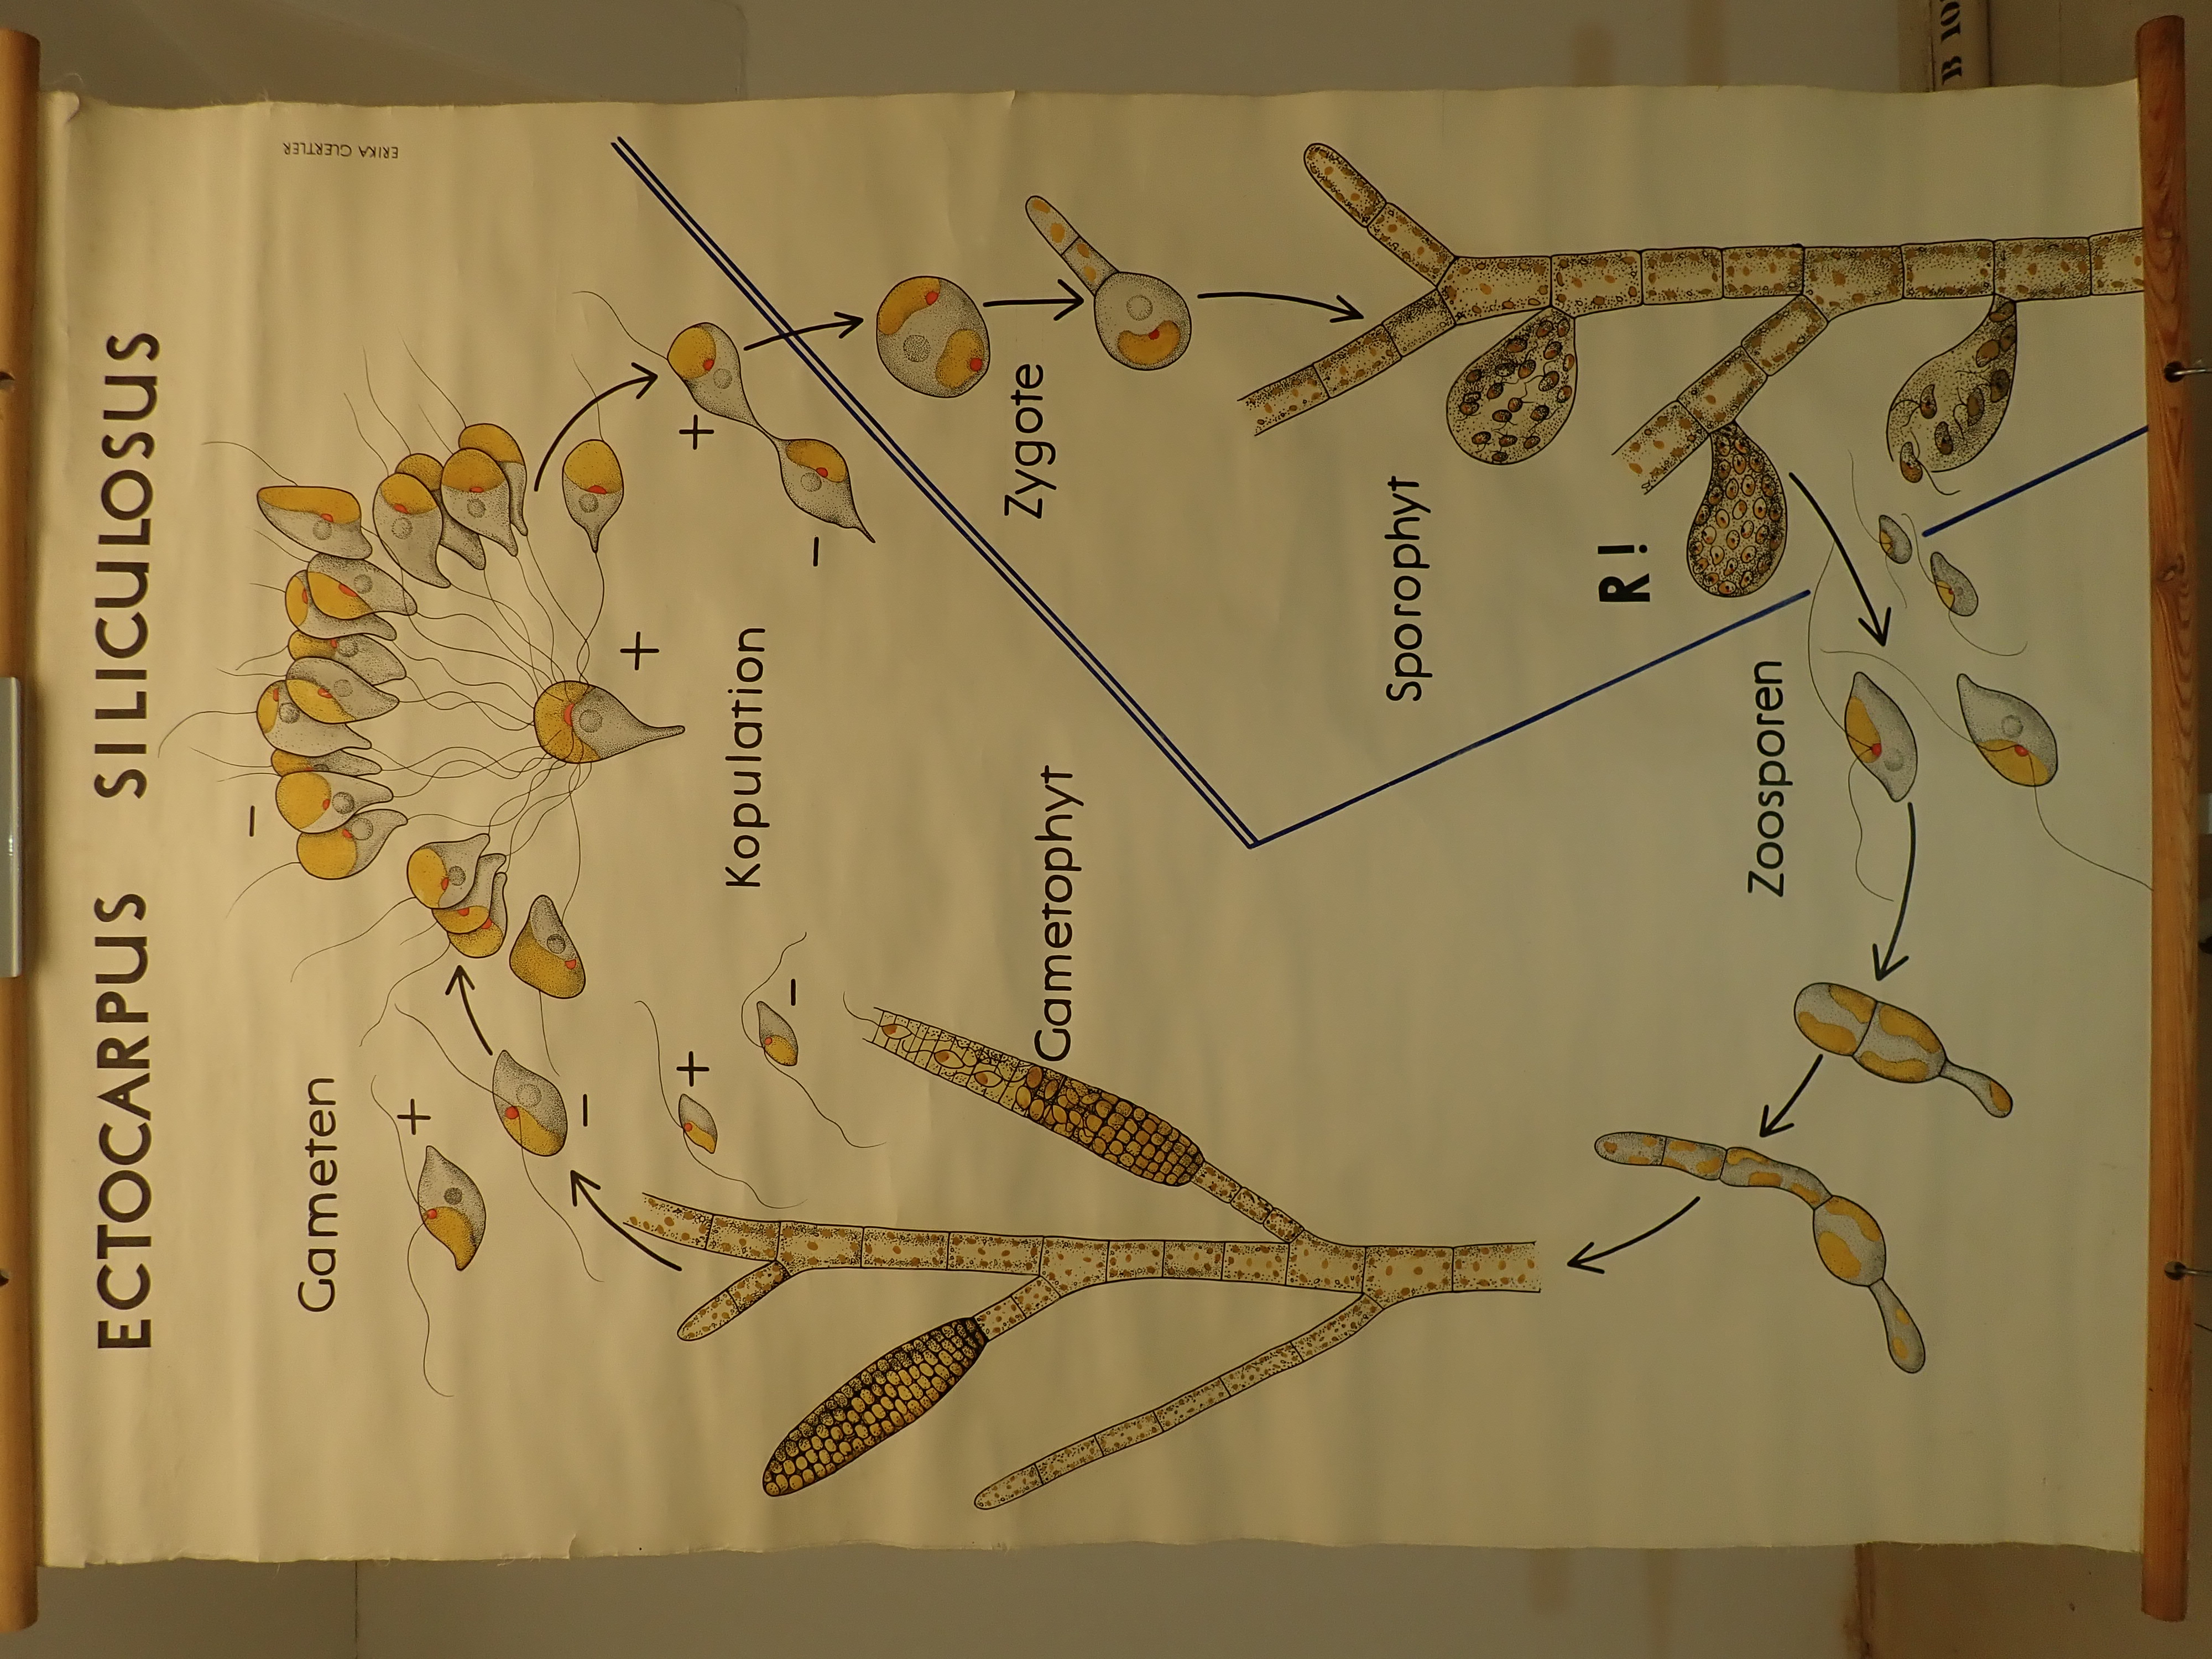 ECTOCARPUS SILICULOSUS
Gameten
+
−
−
+
−
+
Kopulation
+
−
Zygote
Gametophyt
Sporophyt
R!
Zoosporen
ERIKA GUERTLER
B 10